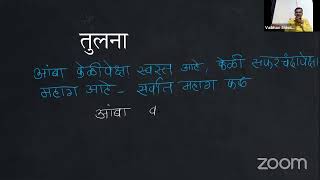 तुलना
आंबा केळीपेक्षा स्वस्त आहे, केळी सफरचंदापेक्षा
महाग आहे – सर्वात महाग फळ
आंबा व
zoom